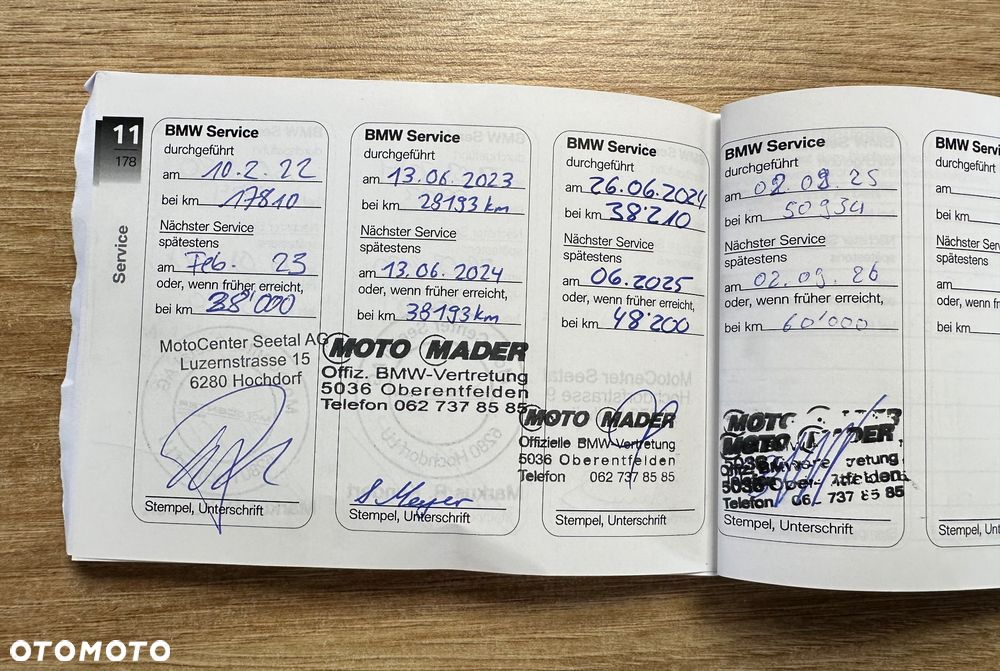 11
178
Service
BMW Service
durchgeführt
am 10.2.22
bei km 17810
Nächster Service
spätestens
am Feb. 23
oder, wenn früher erreicht,
bei km 38'000
MotoCenter Seetal AG
Luzernstrasse 15
6280 Hochdorf
Stempel, Unterschrift
BMW Service
durchgeführt
am 13.06.2023
bei km 28193 km
Nächster Service
spätestens
am 13.06.2024
oder, wenn früher erreicht,
bei km 38193 km
MOTO MADER
Offiz. BMW-Vertretung
5036 Oberentfelden
Telefon 062 737 85 85
S. Meyer
Stempel, Unterschrift
BMW Service
durchgeführt
am 26.06.2024
bei km 38'210
Nächster Service
spätestens
am 06.2025
oder, wenn früher erreicht,
bei km 48'200
MOTO MADER
Offizielle BMW-Vertretung
5036 Oberentfelden
Telefon 062 737 85 85
Stempel, Unterschrift
BMW Service
durchgeführt
am 02.09.25
bei km 50934
Nächster Service
spätestens
am 02.09.26
oder, wenn früher erreicht,
bei km 60'000
MOTO
MOTO MADER
5036
Telefon 737 85 85
Stempel, Unterschrift
BMW
durchgefü
am
bei km
Nächster
spätesten
am
oder, wenn f
bei km
Stempel,
OTOMOTO